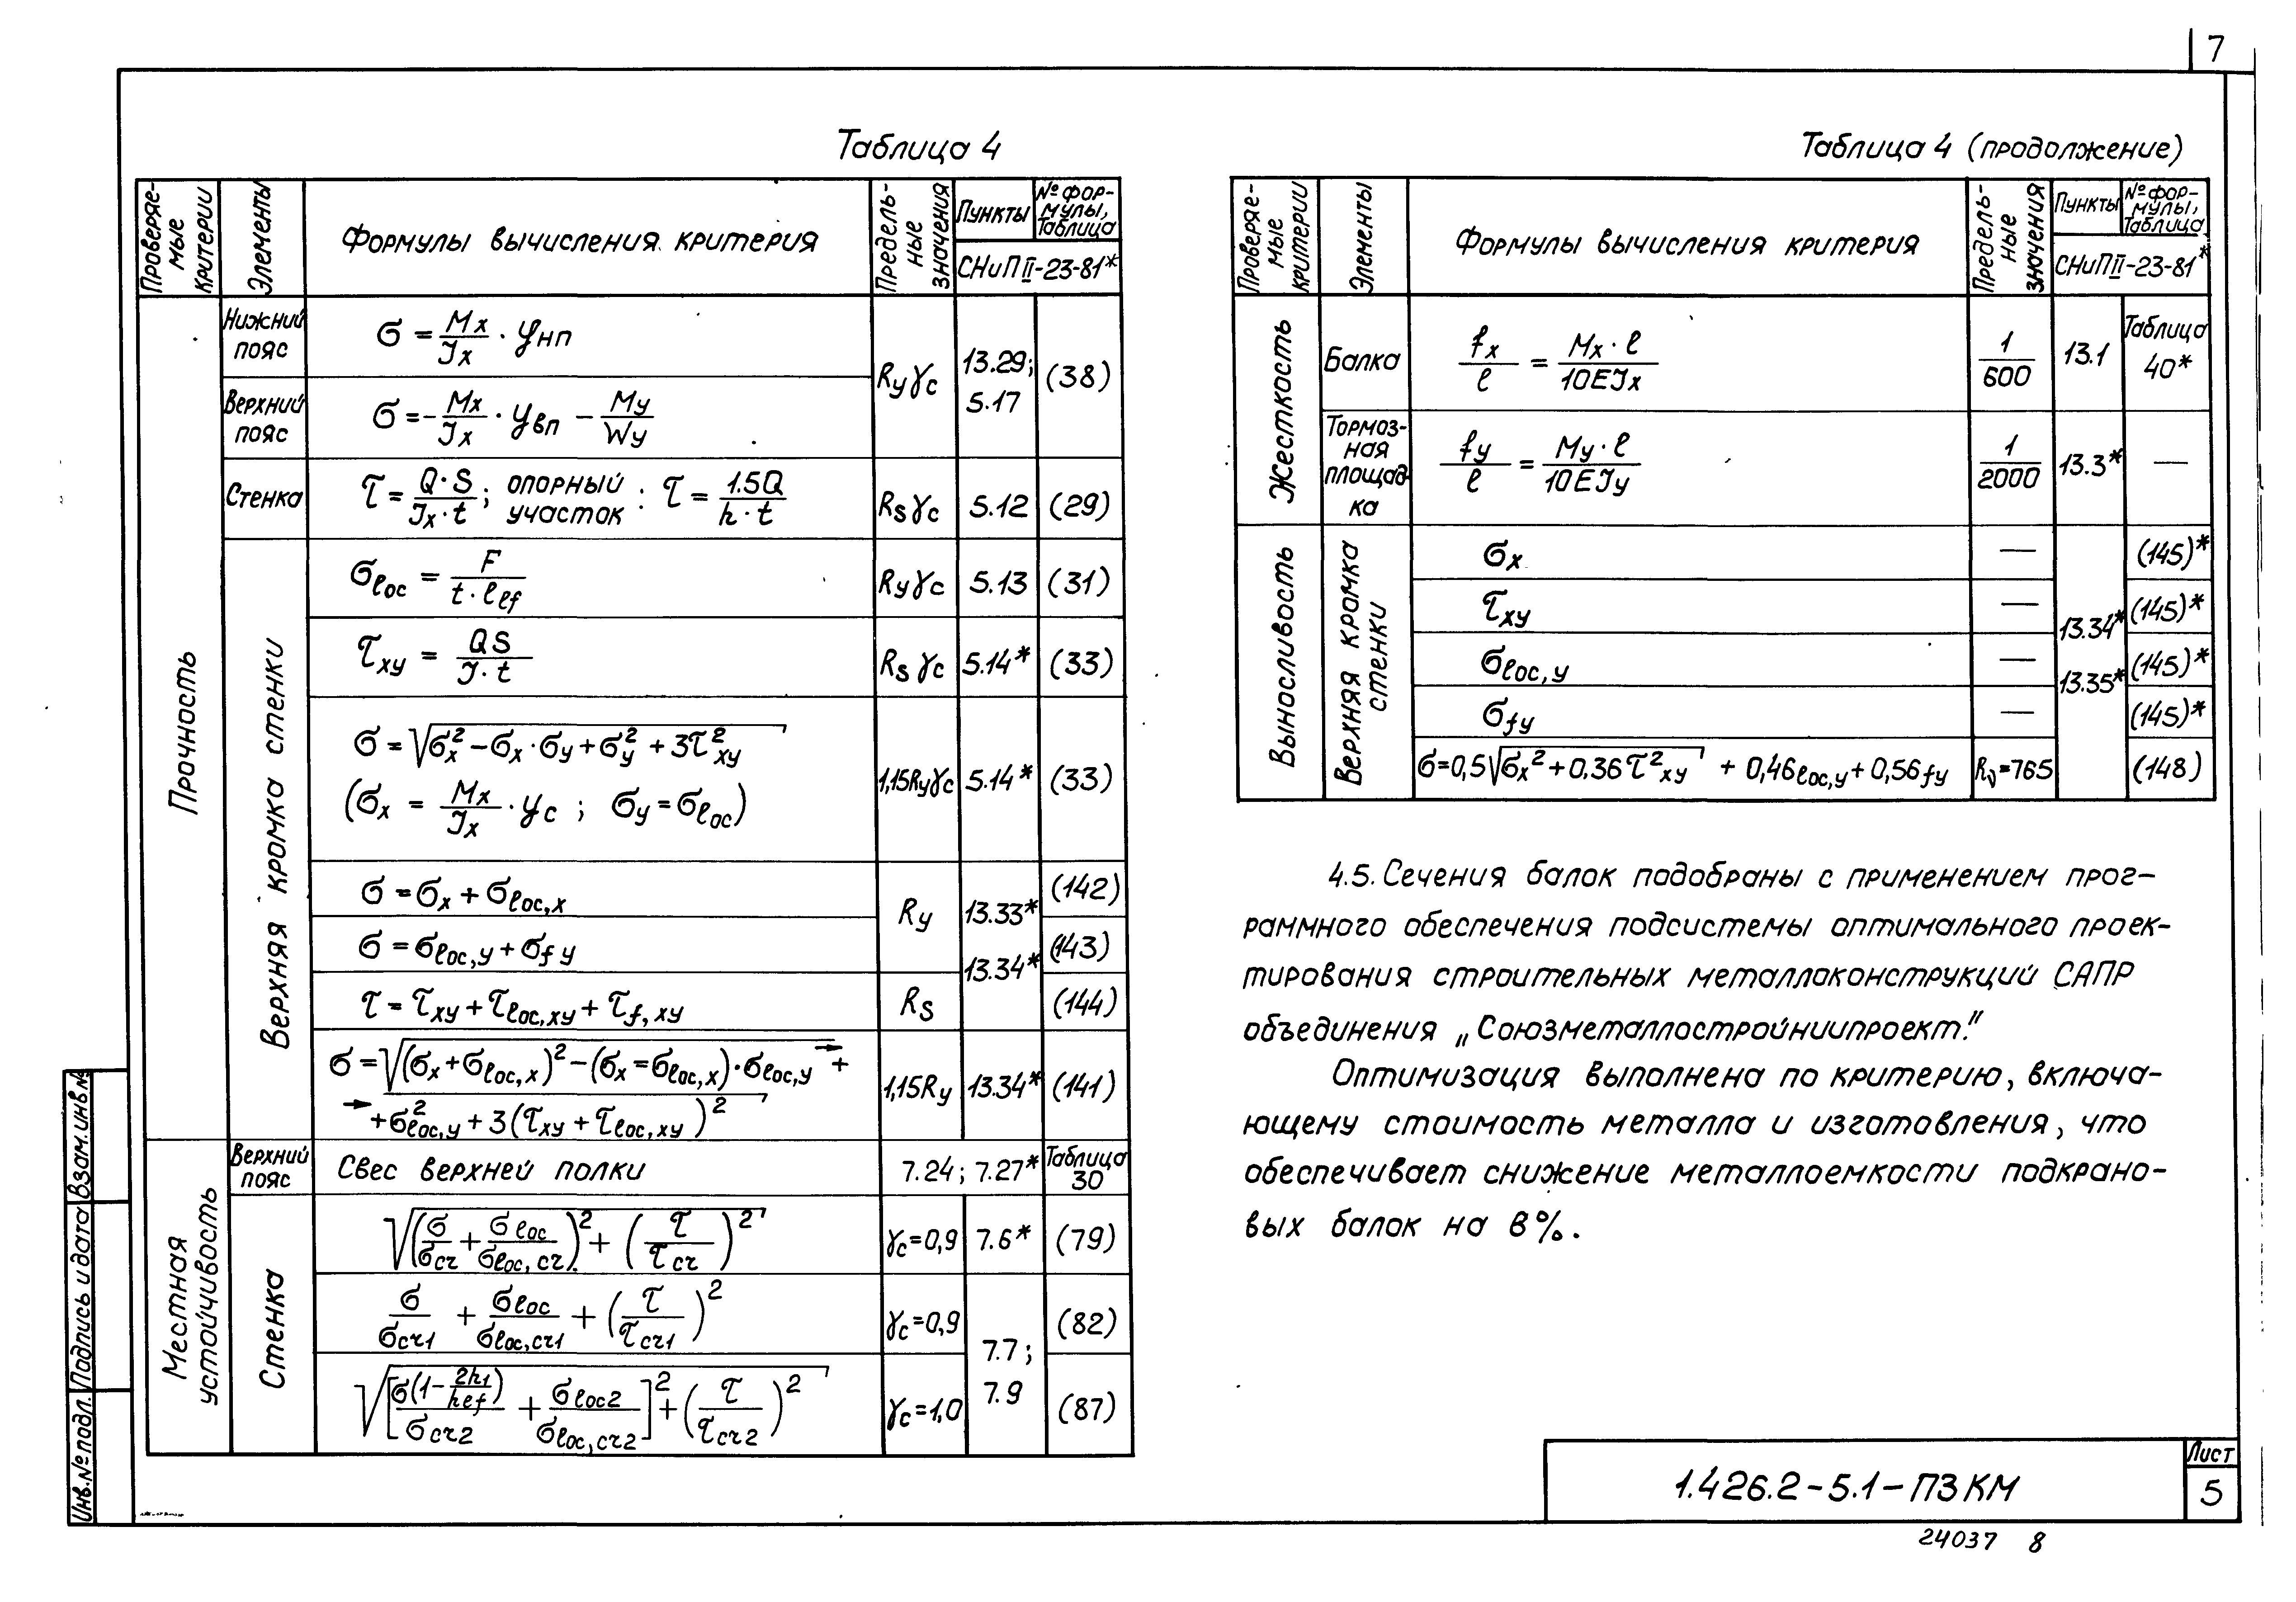 7
Таблица 4
Проверяе-
мые
критерии
Элементы
Формулы вычисления критерия
Предель-
ные
значения
Пункты
№ фор-
мулы,
Таблица
СНиП II-23-81*
Прочность
Нижний
пояс
σ = Mx/Jx · yнп
Ryγc
13.29;
5.17
(38)
Верхний
пояс
σ = - Mx/Jx · yвп - My/Wy
Стенка
τ = Q·S/Jx·t ; опорный участок : τ = 1.5Q/h·t
Rsγc
5.12
(29)
Верхняя кромка стенки
σloc = F/t·lef
Ryγc
5.13
(31)
τxy = QS/J·t
Rsγc
5.14*
(33)
σ = √σx² - σx·σy + σy² + 3τ²xy
(σx = Mx/Jx · yc ; σy = σloc)
1,15Ryγc
5.14*
(33)
σ = σx + σloc,x
Ry
13.33*
13.34*
(142)
σ = σloc,y + σfy
(143)
τ = τxy + τloc,xy + τf,xy
Rs
(144)
σ = √(σx + σloc,x)² - (σx = σloc,x)·σloc,y → +
→ + σ²loc,y + 3(τxy + τloc,xy)²
1,15Ry
13.34*
(141)
Местная
устойчивость
Верхний
пояс
Свес верхней полки
7.24; 7.27*
Таблица
30
Стенка
√(σ/σcr + σloc/σloc,cr)² + (τ/τcr)²
γc=0,9
7.6*
(79)
σ/σcr1 + σloc/σloc,cr1 + (τ/τcr1)²
γc=0,9
7.7;
7.9
(82)
√[σ(1-2h1/hef)/σcr2 + σloc2/σloc,cr2]² + (τ/τcr2)²
γc=1,0
(87)
Таблица 4 (продолжение)
Проверяе-
мые
критерии
Элементы
Формулы вычисления критерия
Предель-
ные
значения
Пункты
№ фор-
мулы,
Таблица
СНиП II-23-81*
Жесткость
Балка
fx/l = Mx·l/10EJx
1/600
13.1
Таблица
40*
Тормоз-
ная
площад-
ка
fy/l = My·l/10EJy
1/2000
13.3*
—
Выносливость
Верхняя кромка
стенки
σx
—
13.34*
13.35*
(145)*
τxy
—
(145)*
σloc,y
—
(145)*
σfy
—
(145)*
σ=0,5√σx² + 0,36τ²xy + 0,4σloc,y + 0,5σfy
Rν=765
(148)
4.5. Сечения балок подобраны с применением прог-
раммного обеспечения подсистемы оптимального проек-
тирования строительных металлоконструкций САПР
объединения „Союзметаллостройниипроект."
Оптимизация выполнена по критерию, включа-
ющему стоимость металла и изготовления, что
обеспечивает снижение металлоемкости подкрано-
вых балок на 8%.
Взам.инв.№
Подпись и дата
Инв.№ подл.
1.426.2-5.1-ПЗ КМ
Лист
5
24037 8